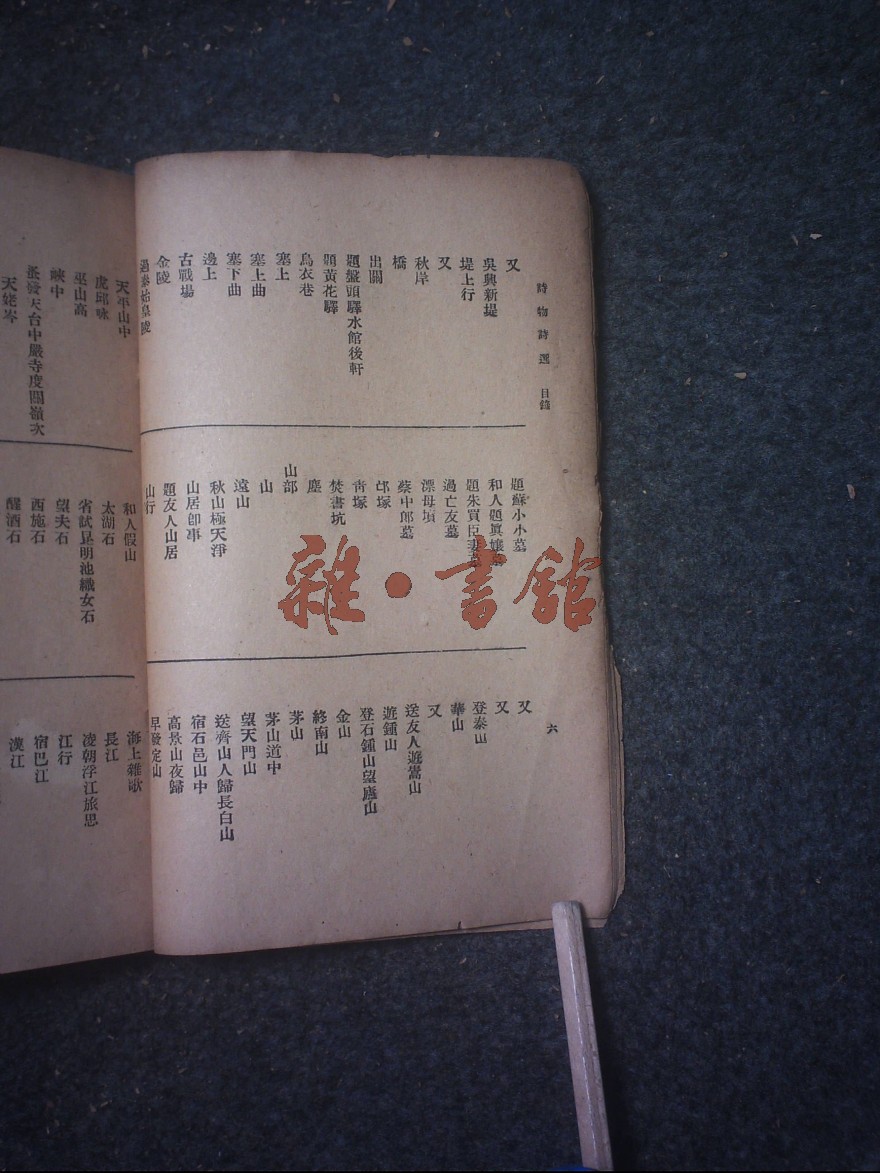 詩物詩選 目錄
六
又
吳興新堤
堤上行
又
秋岸
橋
出關
題盤頭驛水館後軒
題黃花驛
烏衣巷
塞上
塞上曲
塞下曲
邊上
古戰場
金陵
過秦始皇陵
題蘇小小墓
和人題眞孃墓
題朱買臣妻墓
過亡友墓
漂母墳
蔡中郎墓
邙塚
靑塚
焚書坑
塵
山部
山
遠山
秋山極天淨
山居卽事
題友人山居
山行
又
又
登泰山
華山
又
送友人遊嵩山
遊鍾山
登石鍾山望廬山
金山
終南山
茅山
茅山道中
望天門山
送齊山人歸長白山
宿石邑山中
高景山夜歸
早發定山
天平山中
虎邱咏
巫山高
峽中
發天台中嚴寺度關嶺次
天姥岑
和人假山
太湖石
省試昆明池織女石
望夫石
西施石
醒酒石
海上雜歌
長江
凌朝浮江旅思
江行
宿巴江
漢江
雜·書館